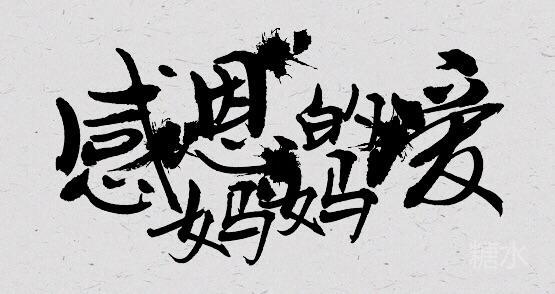 感恩妈妈的爱
糖水